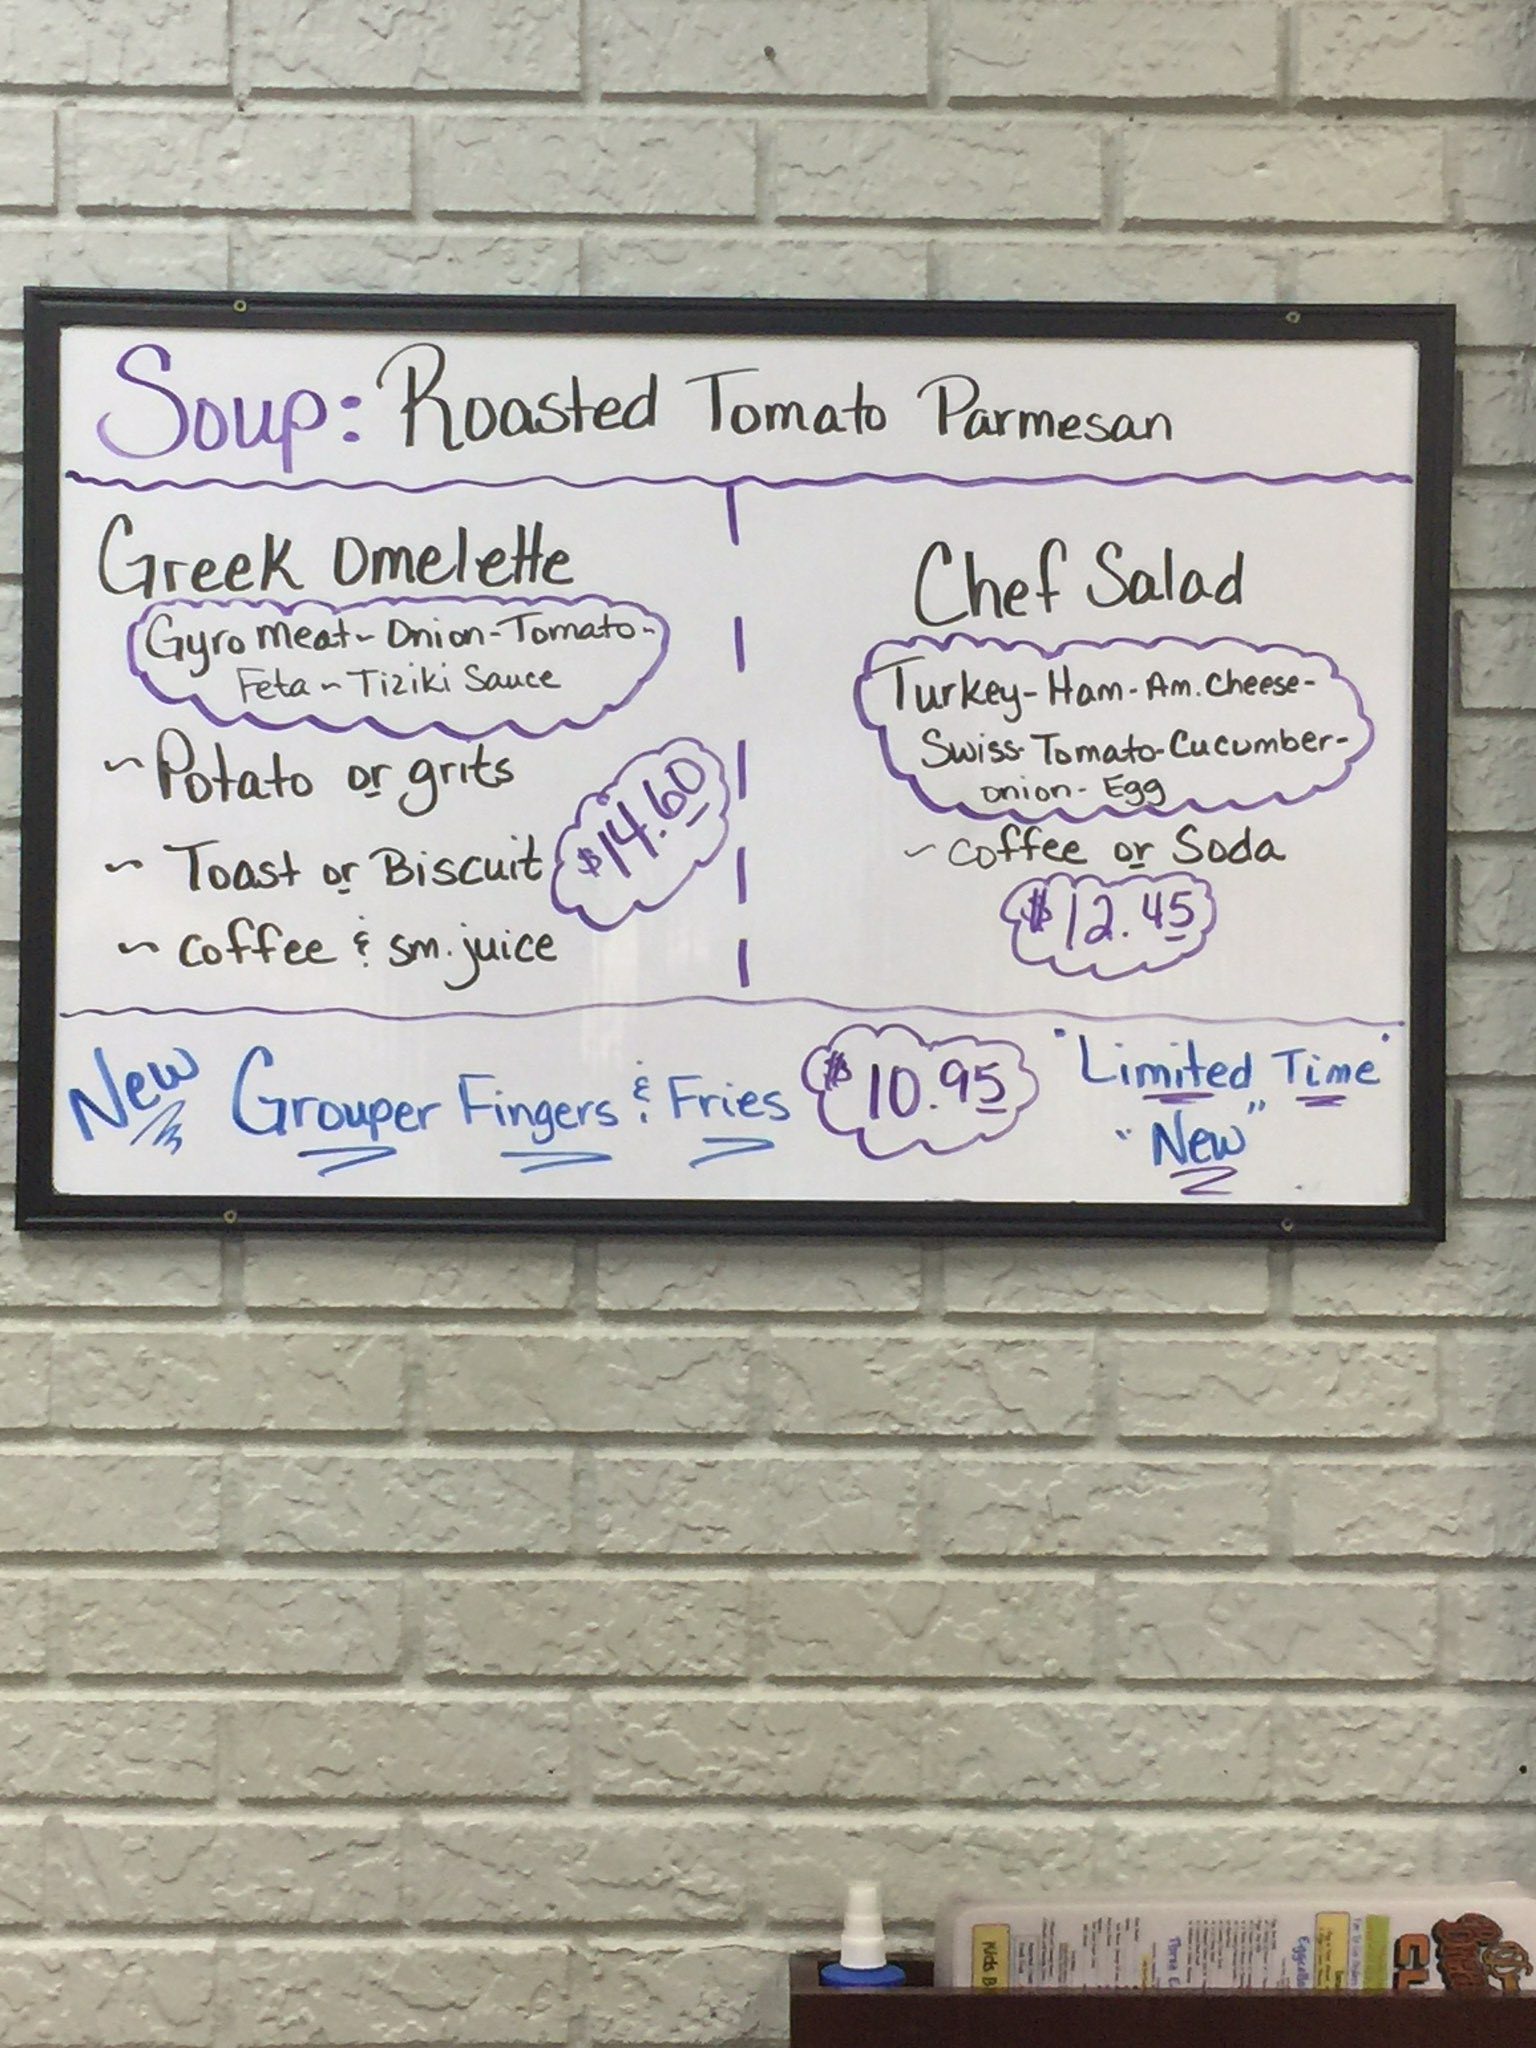 Soup: Roasted Tomato Parmesan
Greek Omelette
Gyro meat~ Onion-Tomato-
Feta ~ Tiziki Sauce
~ Potato or grits
~ Toast or Biscuit
~ coffee & sm. juice
$14.60
Chef Salad
Turkey- Ham- Am. Cheese-
Swiss- Tomato-Cucumber-
onion- Egg
~ coffee or Soda
$12.45
New Grouper Fingers & Fries $10.95
"Limited Time"
"New"
Kids B